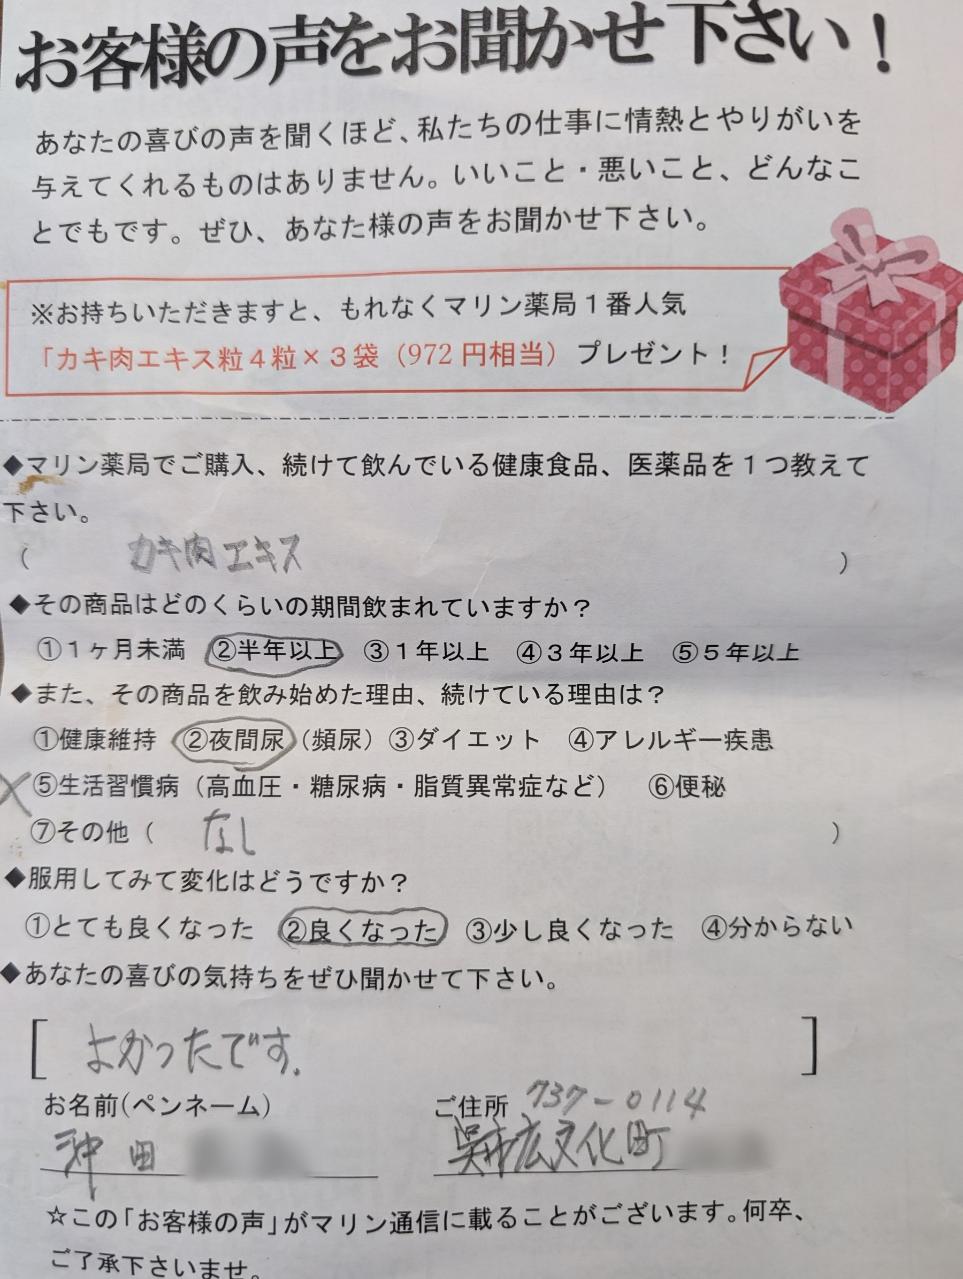 お客様の声をお聞かせ下さい！
あなたの喜びの声を聞くほど、私たちの仕事に情熱とやりがいを
与えてくれるものはありません。いいこと・悪いこと、どんなこ
とでもです。ぜひ、あなた様の声をお聞かせ下さい。
※お持ちいただきますと、もれなくマリン薬局１番人気
「カキ肉エキス粒４粒×３袋（972円相当）プレゼント！
◆マリン薬局でご購入、続けて飲んでいる健康食品、医薬品を１つ教えて
下さい。
（ カキ肉エキス ）
◆その商品はどのくらいの期間飲まれていますか？
①１ヶ月未満 ②半年以上 ③１年以上 ④３年以上 ⑤５年以上
◆また、その商品を飲み始めた理由、続けている理由は？
①健康維持 ②夜間尿（頻尿）③ダイエット ④アレルギー疾患
⑤生活習慣病（高血圧・糖尿病・脂質異常症など） ⑥便秘
⑦その他（ なし ）
◆服用してみて変化はどうですか？
①とても良くなった ②良くなった ③少し良くなった ④分からない
◆あなたの喜びの気持ちをぜひ聞かせて下さい。
[ よかったです. ]
お名前(ペンネーム) ご住所 737-0114
沖田 呉市広文化町
☆この「お客様の声」がマリン通信に載ることがございます。何卒、
ご了承下さいませ。